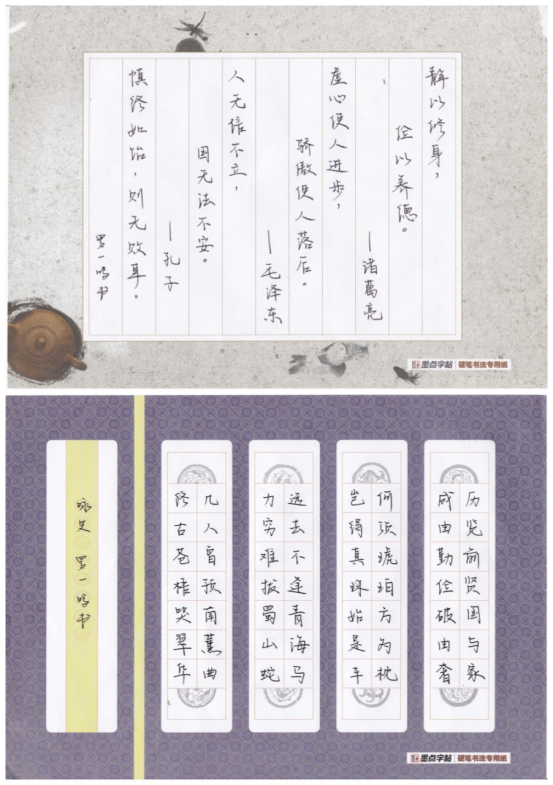 静以修身，
俭以养德。
—诸葛亮
虚心使人进步，
骄傲使人落后。
—毛泽东
人无信不立，
国无法不安。
—孔子
慎终如始，则无败事。
罗一鸣书
墨点字帖 硬笔书法专用纸
历览前贤国与家
成由勤俭破由奢
何须琥珀方为枕
岂得真珠始是车
远去不逢青海马
力穷难拔蜀山蛇
几人曾预南薰曲
终古苍梧哭翠华
咏史 罗一鸣书
墨点字帖 硬笔书法专用纸